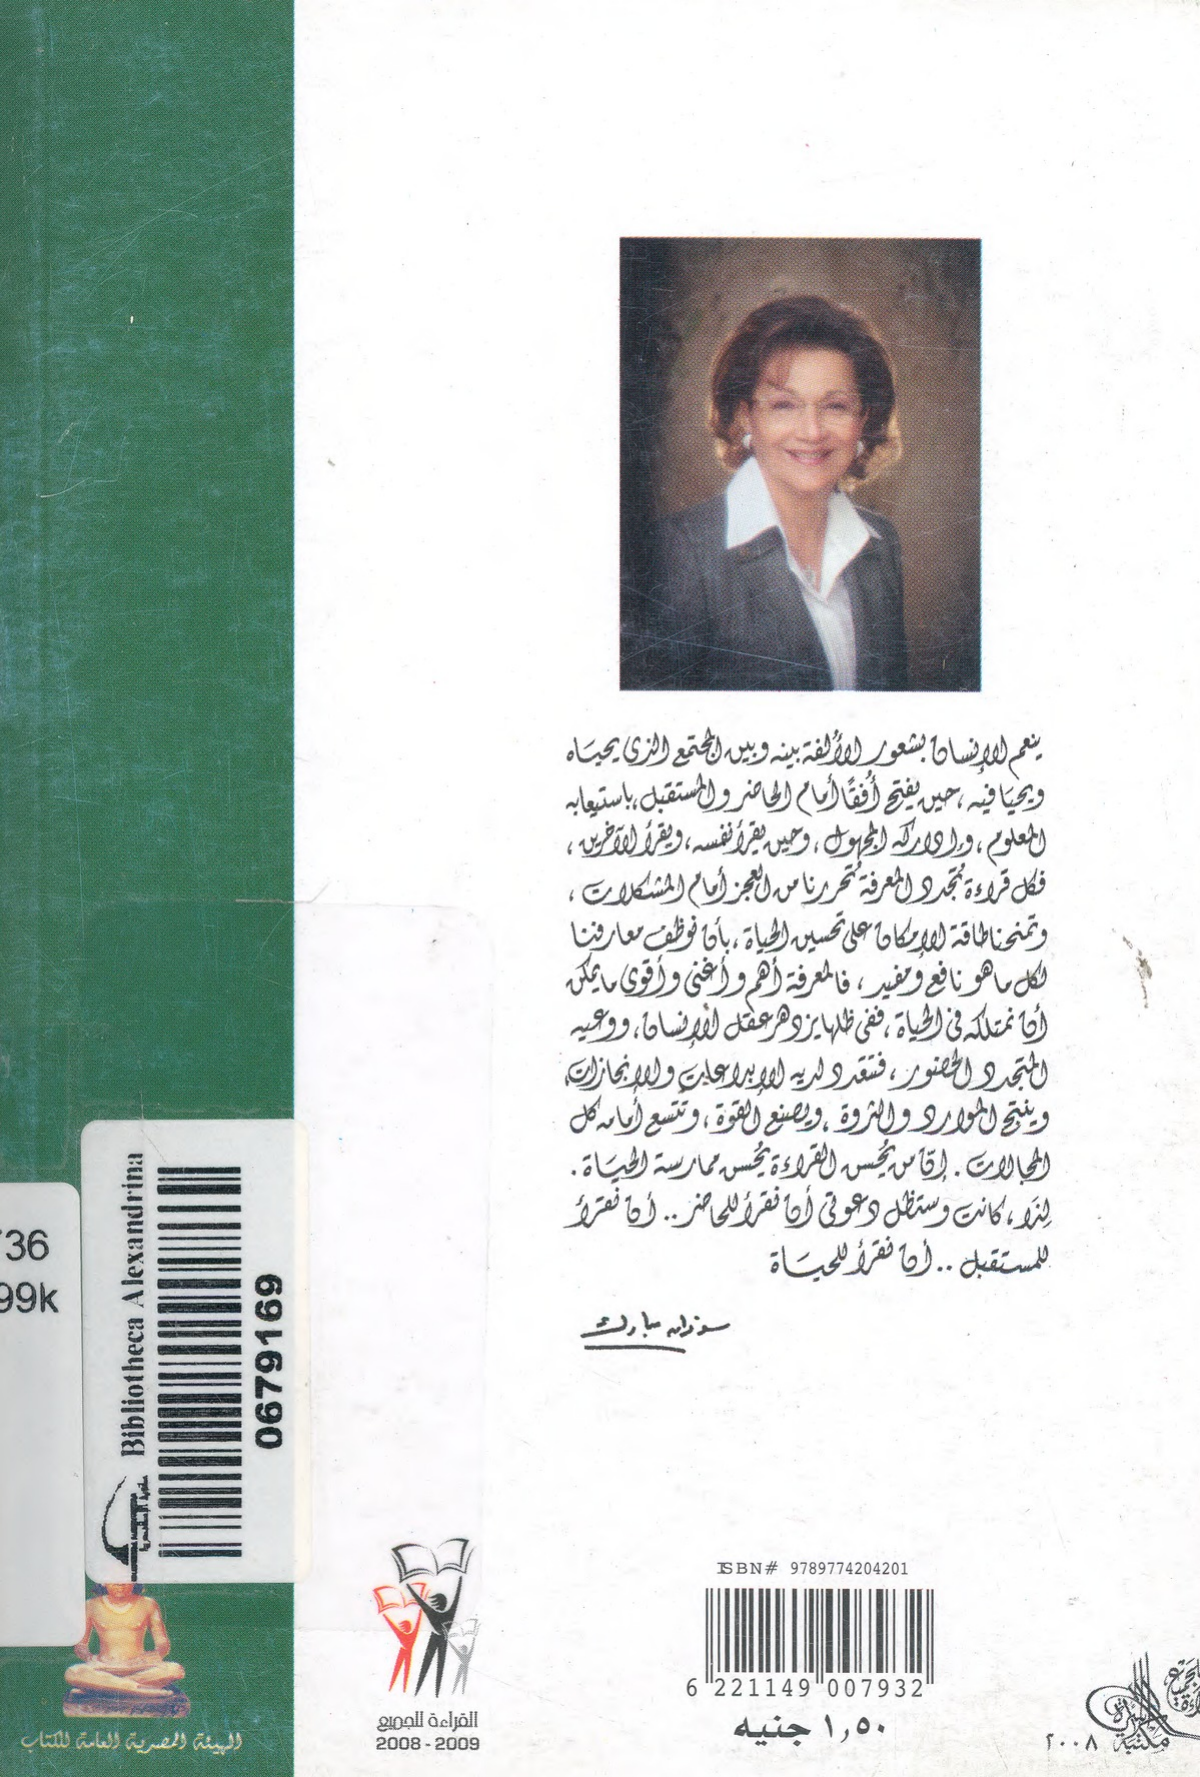 ينعم الإنسان بشعور الألفة بينه وبين المجتمع الذى يحياه
ويحيا فيه، حين يفتح أُفقًا أمام الحاضر والمستقبل، باستيعابه
المعلوم، وإدراكه المجهول، وحين يقرأ نفسه، ويقرأ الآخرين،
فكل قراءة تُجدد المعرفة تُحررنا من العجز أمام المشكلات،
وتمنحنا طاقة الإمكان على تحسين الحياة، بأن نوظف معارفنا
لكل ما هو نافع ومفيد، فالمعرفة أهم وأغنى وأقوى ما يمكن
أن نمتلكه فى الحياة، ففى ظلها يزدهر عقل الإنسان، ووعيه
المتجدد الحضور، فتتعدد لديه الإبداعات والإنجازات،
وينتج الموارد والثروة، ويصنع القوة، وتتسع أمامه كل
المجالات. إن من يُحسن القراءة يُحسن ممارسة الحياة.
لِذَا، كانت وستظل دعوتى أن نقرأ للحاضر.. أن نقرأ
للمستقبل.. أن نقرأ للحياة
سوزان مبارك
736
99k
Bibliotheca Alexandrina
مكتبة الإسكندرية
0679169
الهيئة المصرية العامة للكتاب
القراءة للجميع
2008 - 2009
ISBN# 9789774204201
6 221149 007932
١,٥٠ جنيه
مكتبة الأسرة
٢٠٠٨